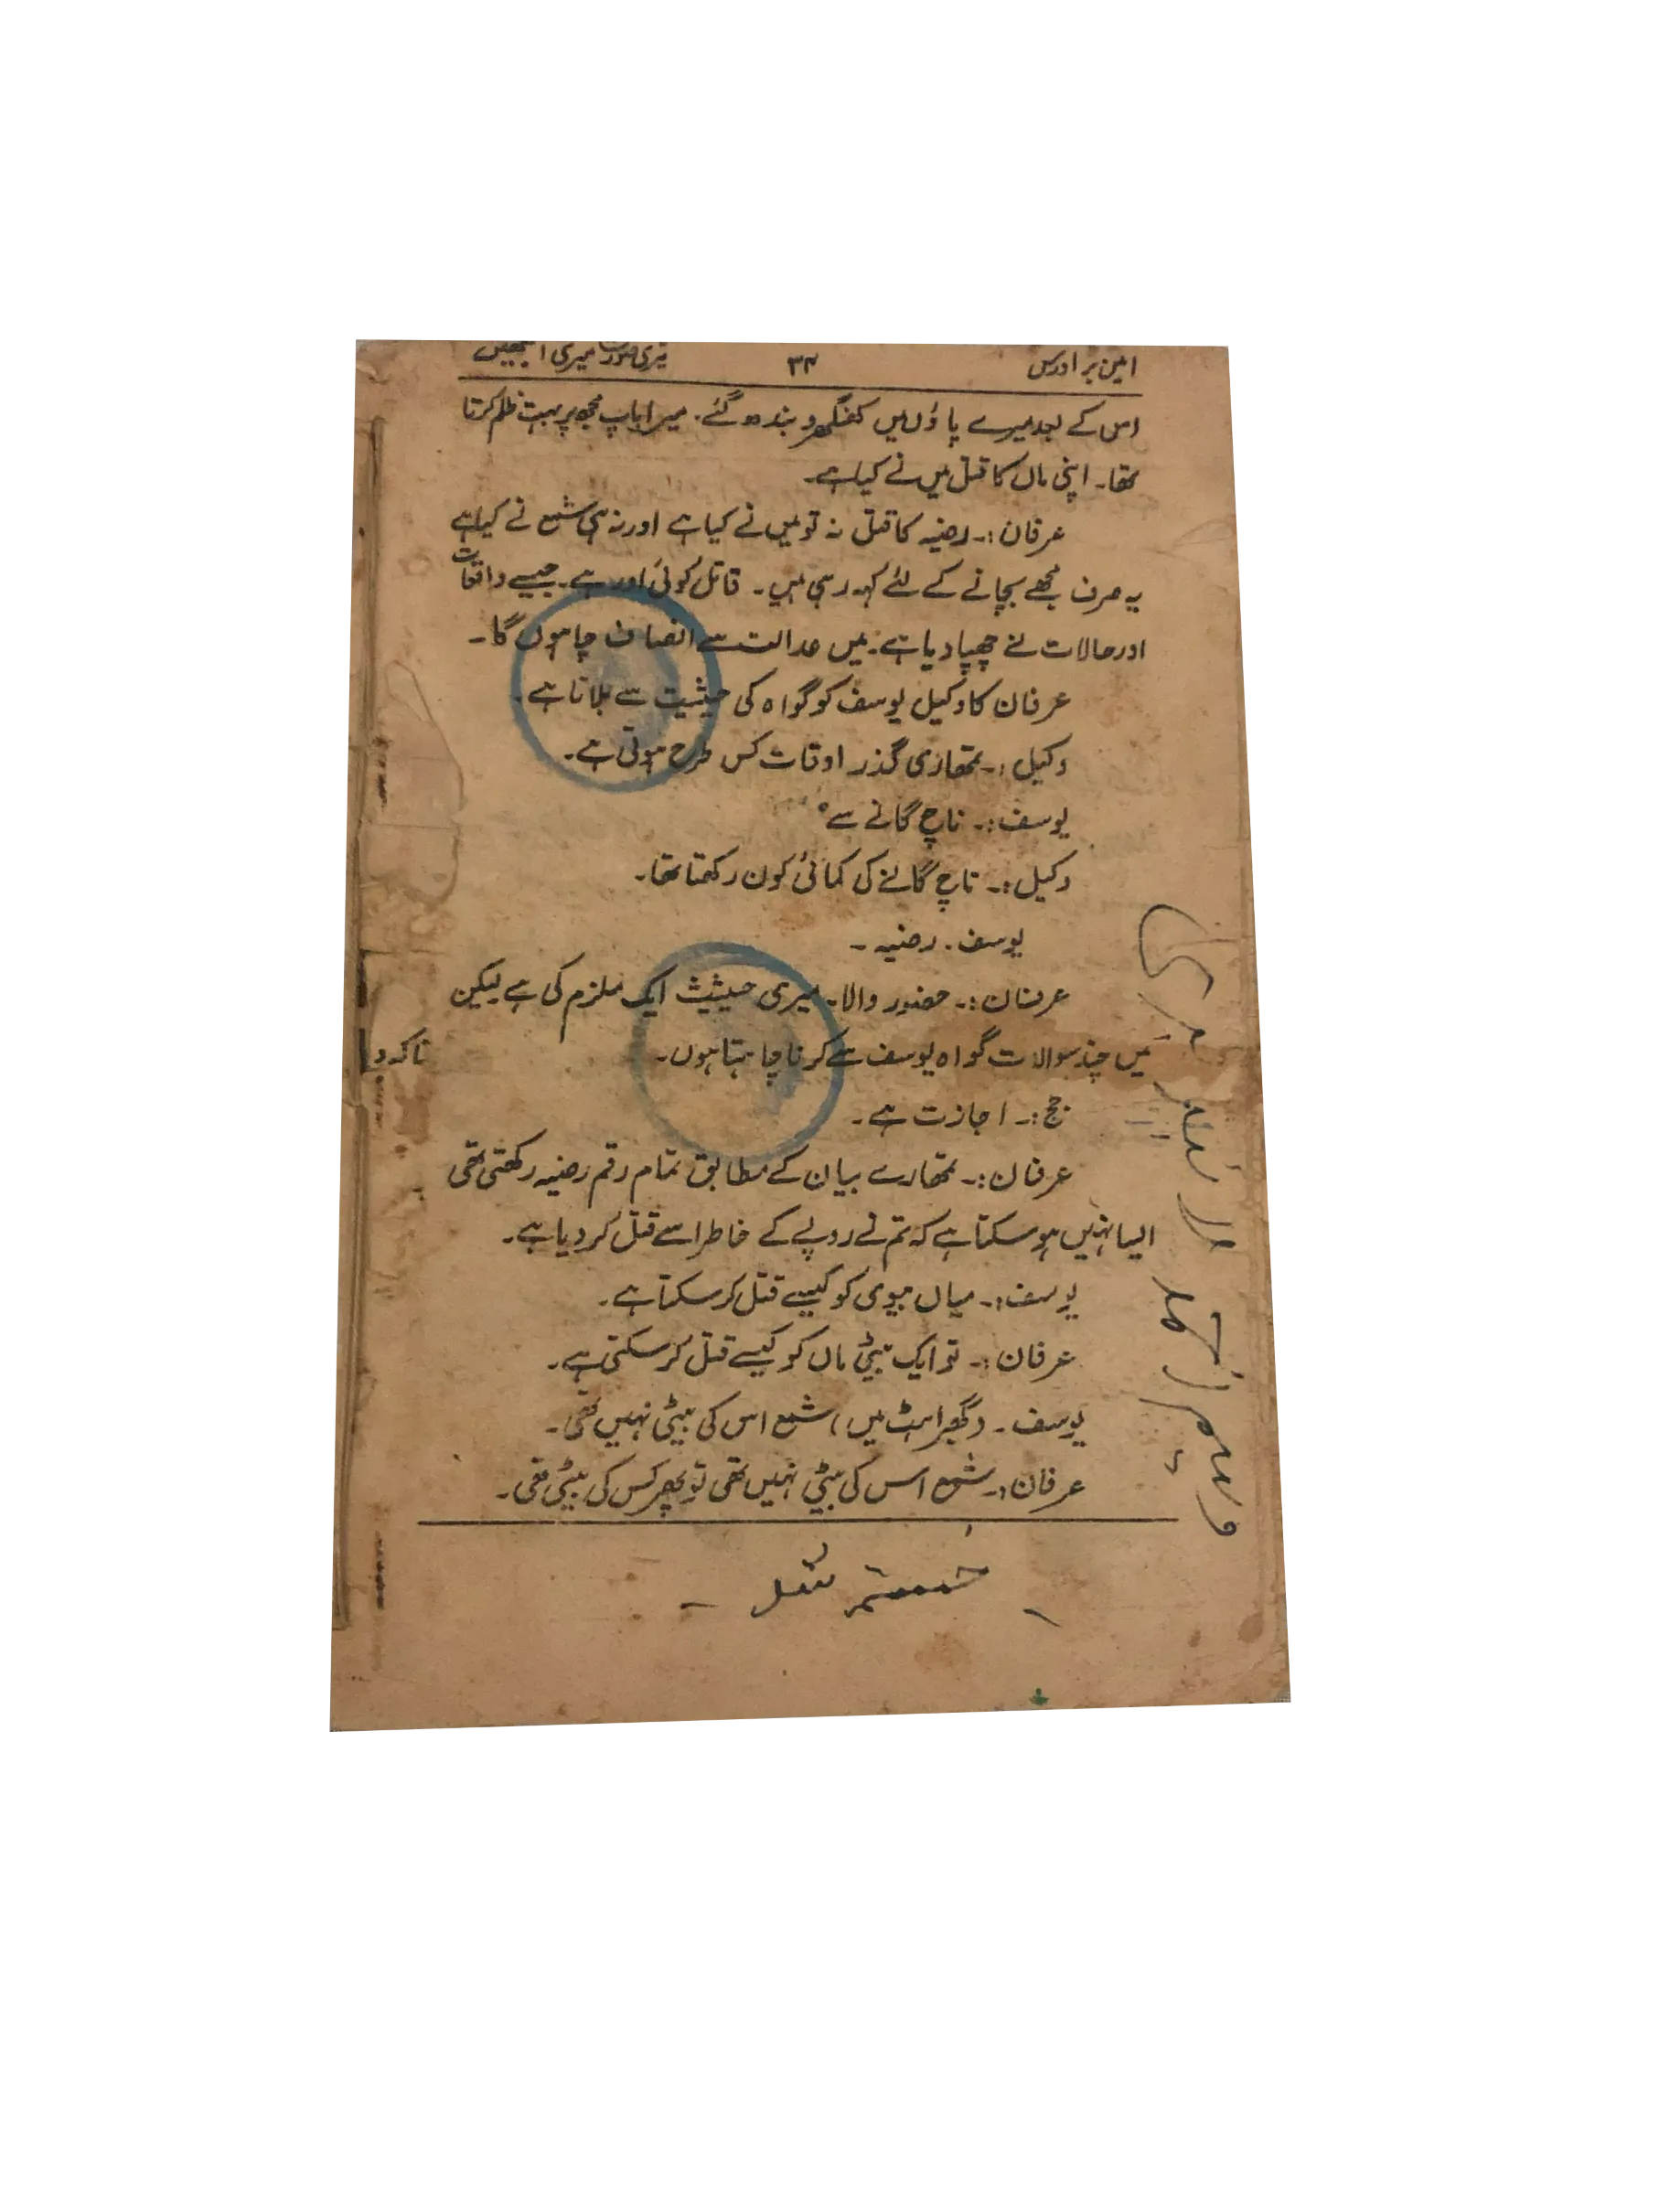 امین برادرس ۳۴ تیری صورت میری آنکھیں
اس کے بعد میرے پاؤں میں گھنگھرو بندھ گئے۔ میرا باپ مجھ پر بہت ظلم کرتا
تھا۔ اپنی ماں کا قتل میں نے کیا ہے۔
عرفان :۔ رضیہ کا قتل نہ تو میں نے کیا ہے اور نہ ہی شمع نے کیا ہے
یہ صرف مجھے بچانے کے لئے کہہ رہی ہیں۔ قاتل کوئی اور ہے۔ جیسے واقعات
اور حالات نے چھپا دیا ہے۔ میں عدالت سے انصاف چاہوں گا۔
عرفان کا وکیل یوسف کو گواہ کی حیثیت سے بلاتا ہے۔
وکیل :۔ تمھاری گذر اوقات کس طرح ہوتی ہے۔
یوسف :۔ ناچ گانے سے
وکیل :۔ ناچ گانے کی کمائی کون رکھتا تھا۔
یوسف۔ رضیہ ۔
عرفان :۔ حضور والا۔ میری حیثیث ایک ملزم کی ہے لیکن
میں چند سوالات گواہ یوسف سے کرنا چاہتا ہوں۔
جج :۔ اجازت ہے۔
عرفان :۔ تمھارے بیان کے مطابق تمام رقم رضیہ رکھتی تھی
ایسا نہیں ہو سکتا ہے کہ تم نے روپے کے خاطر اسے قتل کر دیا ہے۔
یوسف :۔ میاں بیوی کو کیسے قتل کر سکتا ہے۔
عرفان :۔ تو ایک بیٹی ماں کو کیسے قتل کر سکتی ہے۔
یوسف ۔ (گھبراہٹ میں) شمع اس کی بیٹی نہیں تھی۔
عرفان :۔ شمع اس کی بیٹی نہیں تھی تو پھر کس کی بیٹی تھی۔